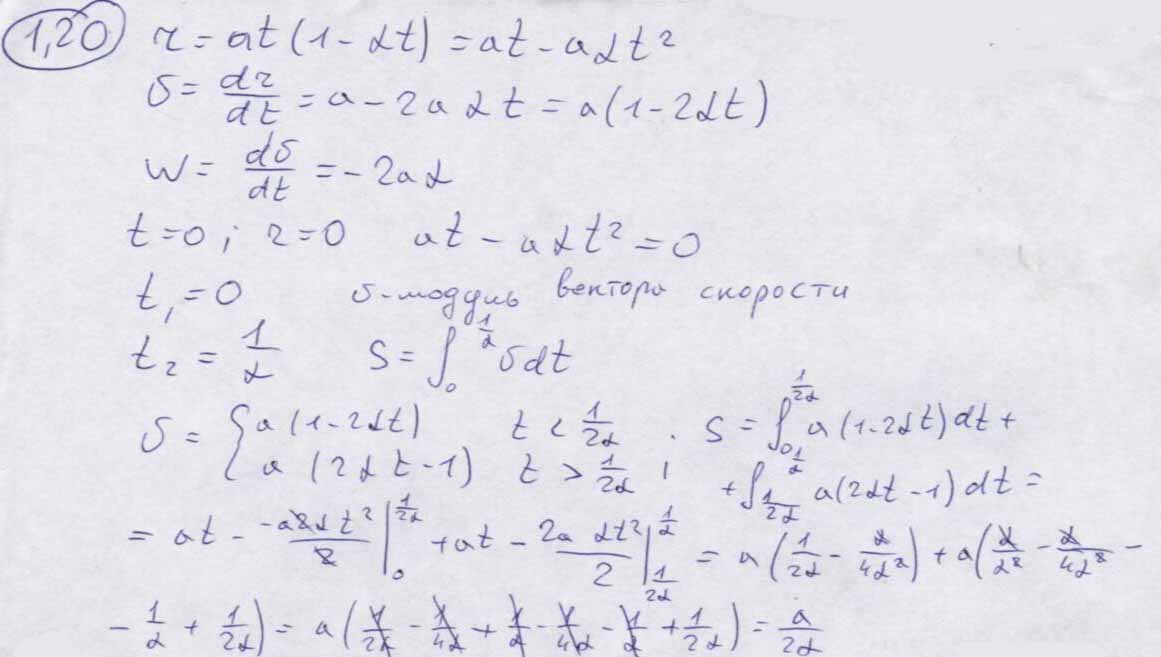 1,20 r = at(1-αt) = at - aαt²
v = dr/dt = a - 2aαt = a(1-2αt)
w = dv/dt = -2aα
t=0; r=0 at - aαt² = 0
t₁=0 v-модуль вектора скорости
t₂ = 1/α S = ∫₀^(1/α) v dt
v = { a(1-2αt) t < 1/2α ; S = ∫₀^(1/2α) a(1-2αt)dt +
a(2αt-1) t > 1/2α + ∫_(1/2α)^(1/α) a(2αt-1)dt =
= at - -a2αt²/2 |₀^(1/2α) + at - 2aαt²/2 |_(1/2α)^(1/α) = a(1/2α - α/4α²) + a(α/α² - α/4α² -
- 1/α + 1/2α) = a(1/2α - 1/4α + 1/α - 1/4α - 1/α + 1/2α) = a/2α